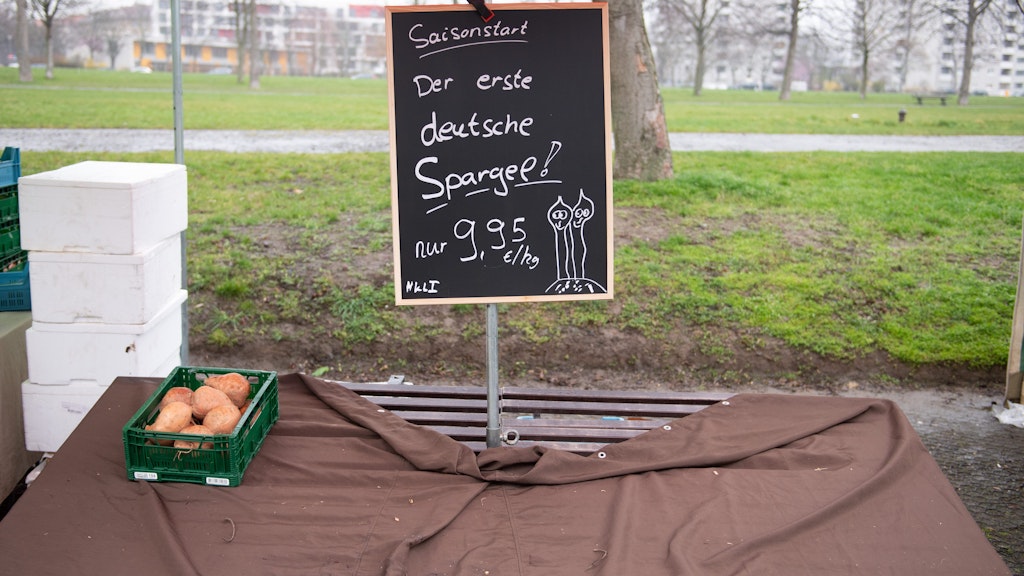 Saisonstart
Der erste
deutsche
Spargel!
nur 9,95
€/kg
HKLI